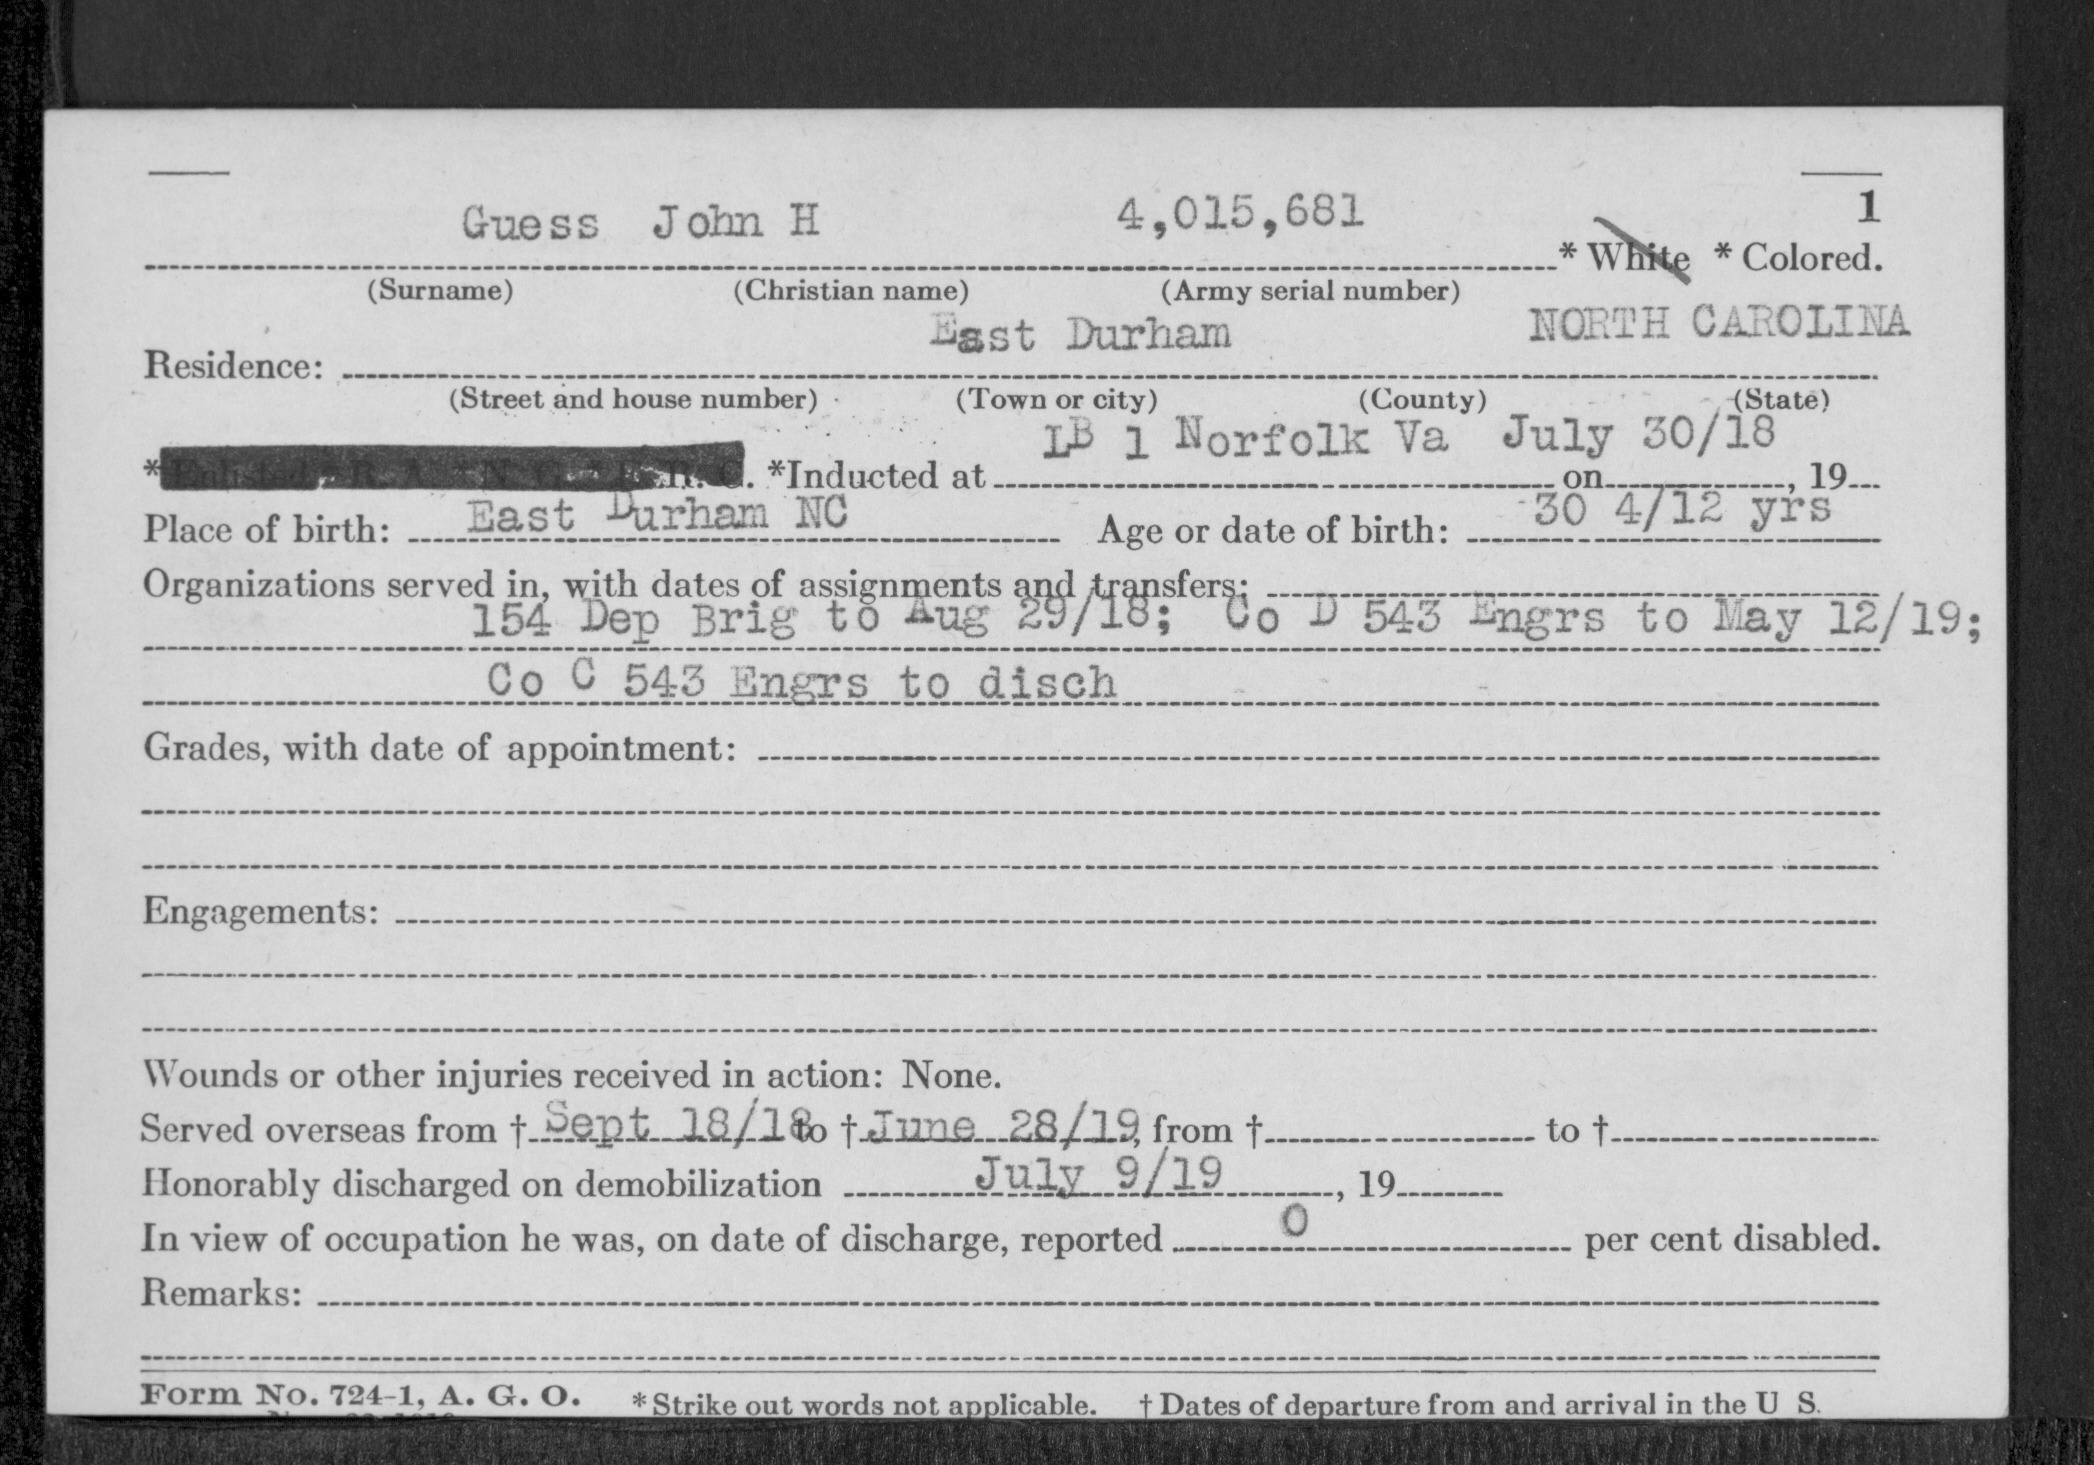 1
Guess John H 4,015,681 * White * Colored.
(Surname) (Christian name) (Army serial number)
East Durham NORTH CAROLINA
Residence:
(Street and house number) (Town or city) (County) (State)
LB 1 Norfolk Va July 30/18
*Enlisted R. A. * N. G. * E. R. C. *Inducted at on , 19
East Durham NC 30 4/12 yrs
Place of birth: Age or date of birth:
Organizations served in, with dates of assignments and transfers:
154 Dep Brig to Aug 29/18; Co D 543 Engrs to May 12/19;
Co C 543 Engrs to disch
Grades, with date of appointment:
Engagements:
Wounds or other injuries received in action: None.
Served overseas from † Sept 18/18 to † June 28/19, from † to †
Honorably discharged on demobilization July 9/19, 19
In view of occupation he was, on date of discharge, reported 0 per cent disabled.
Remarks:
Form No. 724-1, A. G. O. * Strike out words not applicable. † Dates of departure from and arrival in the U S.